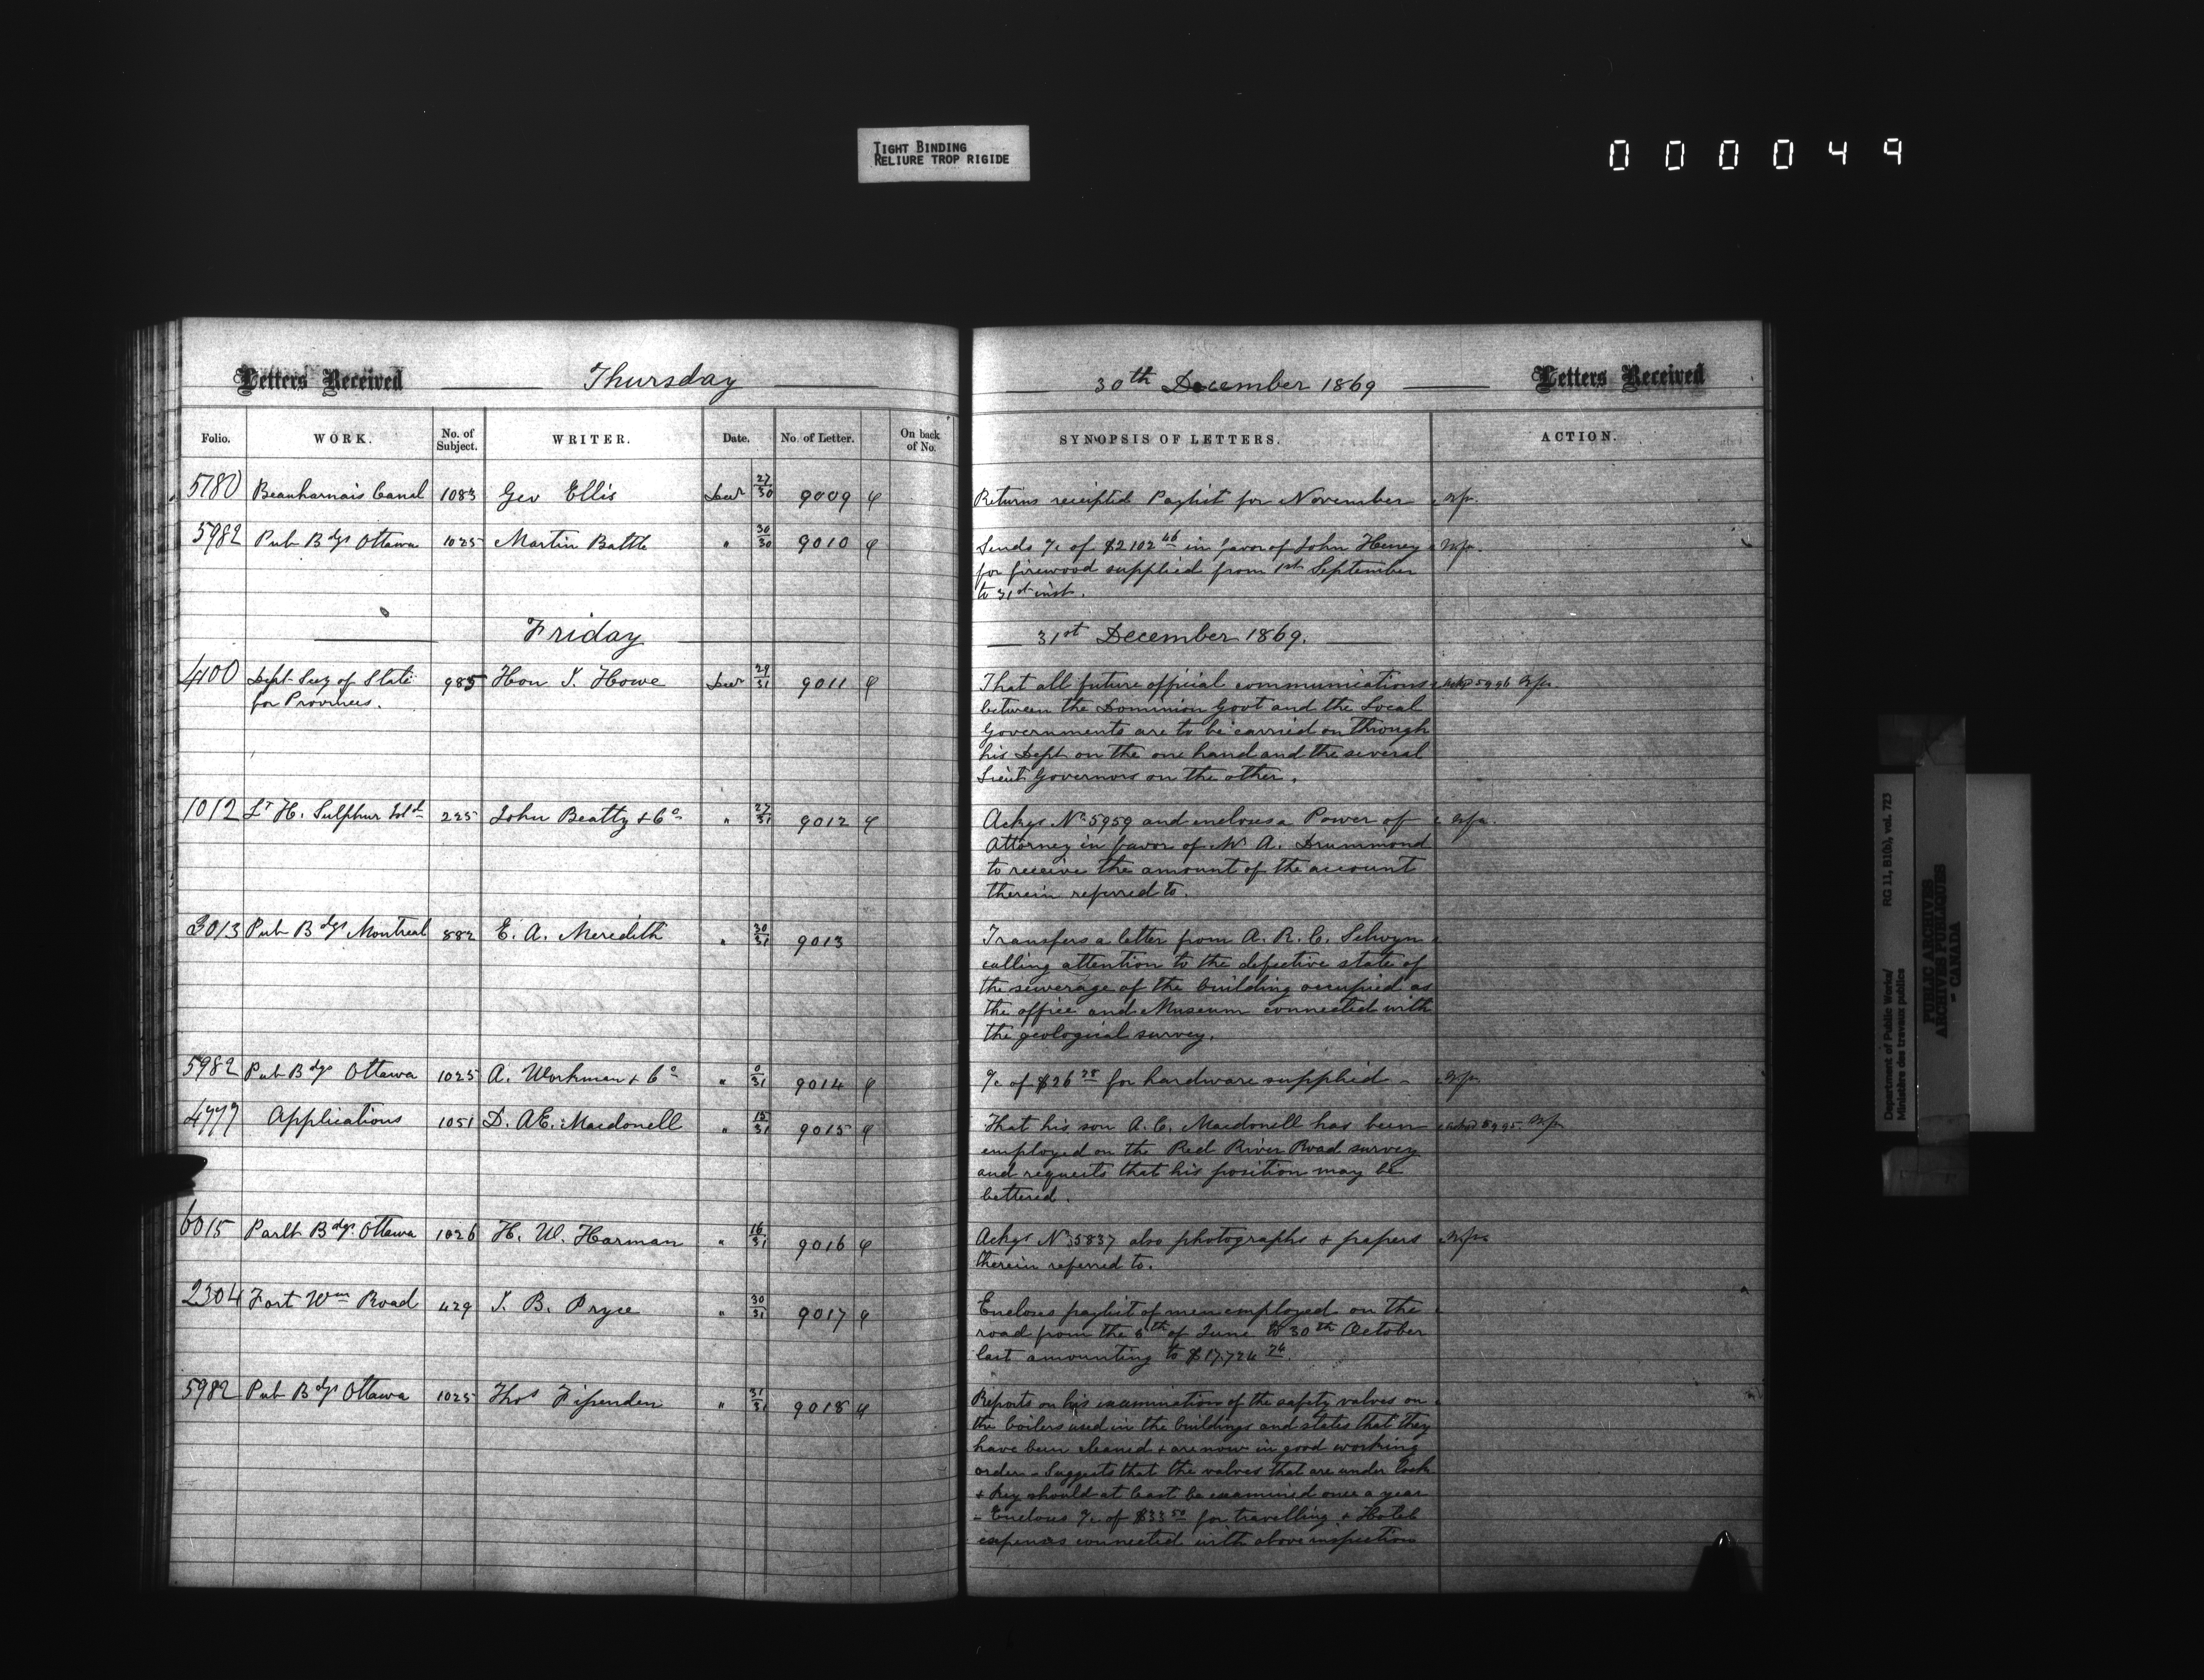 TIGHT BINDING
RELIURE TROP RIGIDE
000049
Letters Received Thursday
Folio. WORK. No. of Subject. WRITER. Date. No. of Letter. On back of No.
5780 Beauharnais Canal 1083 Geo Ellis Decr 27/30 9009
5982 Pub Bdgs Ottawa 1025 Martin Battle " 30/30 9010
Friday
4100 Dept Secy of State 985 Hon J. Howe Decr 29/31 9011
for Provinces.
1012 Lt H. Sulphur Isld 225 John Beatty & Co " 27/31 9012
3013 Pub Bdgs Montreal 882 E. A. Meredith " 30/31 9013
5982 Pub Bdgs Ottawa 1025 A. Workman & Co " 0/31 9014
4777 Applications 1051 D. AE. Macdonell " 15/31 9015
6015 Parlt Bdgs Ottawa 1026 H. W. Harman " 16/31 9016
2304 Fort Wm Road 429 J. B. Pryce " 30/31 9017
5982 Pub Bdgs Ottawa 1025 Thos Fipenden " 31/31 9018
30th December 1869 Letters Received
SYNOPSIS OF LETTERS. ACTION.
Returns receipted Paylist for November
Sends a/c of $2102 46 in favor of John Heney
for firewood supplied from 1st September
to 31st inst.
31st December 1869.
That all future official communications 5996
between the Dominion Govt and the Local
Governments are to be carried on through
his Dept on the one hand and the several
Lieut Governors on the other.
Ackgs No 5959 and incloses a Power of
Attorney in favor of Mr A. Drummond
to receive the amount of the account
therein referred to.
Transfers a letter from A. R. C. Selwyn
calling attention to the defective state of
the sewerage of the building occupied as
the office and Museum connected with
the geological survey.
a/c of $26 28 for hardware supplied
That his son A. C. Macdonell has been 5995
employed on the Red River Road survey
and requests that his position may be
bettered.
Ackgs No 5837 also photographs & papers
therein referred to.
Encloses paylist of men employed on the
road from the 8th of June to 30th October
last amounting to $17.724 74.
Reports on his examination of the safety valves on
the boilers used in the buildings and states that they
have been cleaned & are now in good working
order - Suggests that the valves that are under lock
& key should at least be examined once a year
- Encloses a/c of $33 50 for travelling & Hotel
expenses connected with above inspection
Department of Public Works/ RG 11, B1(b), vol. 723
Ministère des travaux publics
PUBLIC ARCHIVES
ARCHIVES PUBLIQUES
CANADA